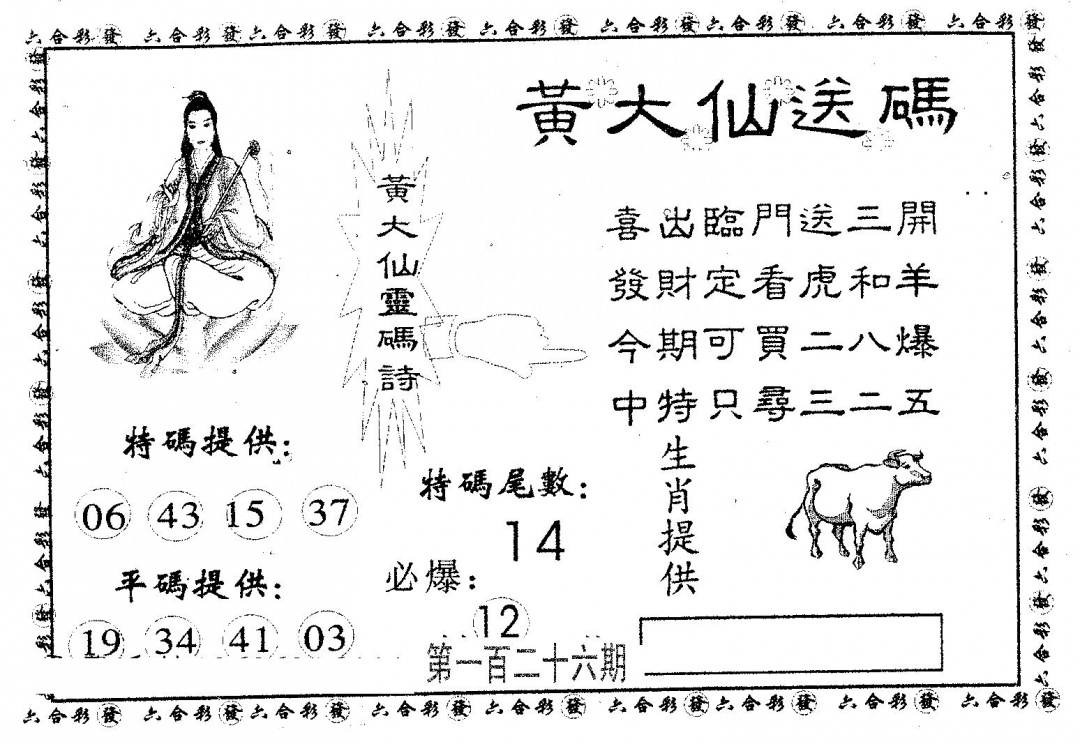 六合彩發 六合彩發 六合彩發 六合彩發 六合彩發 六合彩發 六合彩發 六合彩發 六合彩發
黃大仙送碼
黃大仙靈碼詩
喜出臨門送三開
發財定看虎和羊
今期可買二八爆
中特只尋三二五
特碼提供：
06 43 15 37
平碼提供：
19 34 41 03
特碼尾數：
14
必爆：
12
生肖提供
第一百二十六期
六合彩發 六合彩發 六合彩發 六合彩發 六合彩發 六合彩發 六合彩發 六合彩發 六合彩發